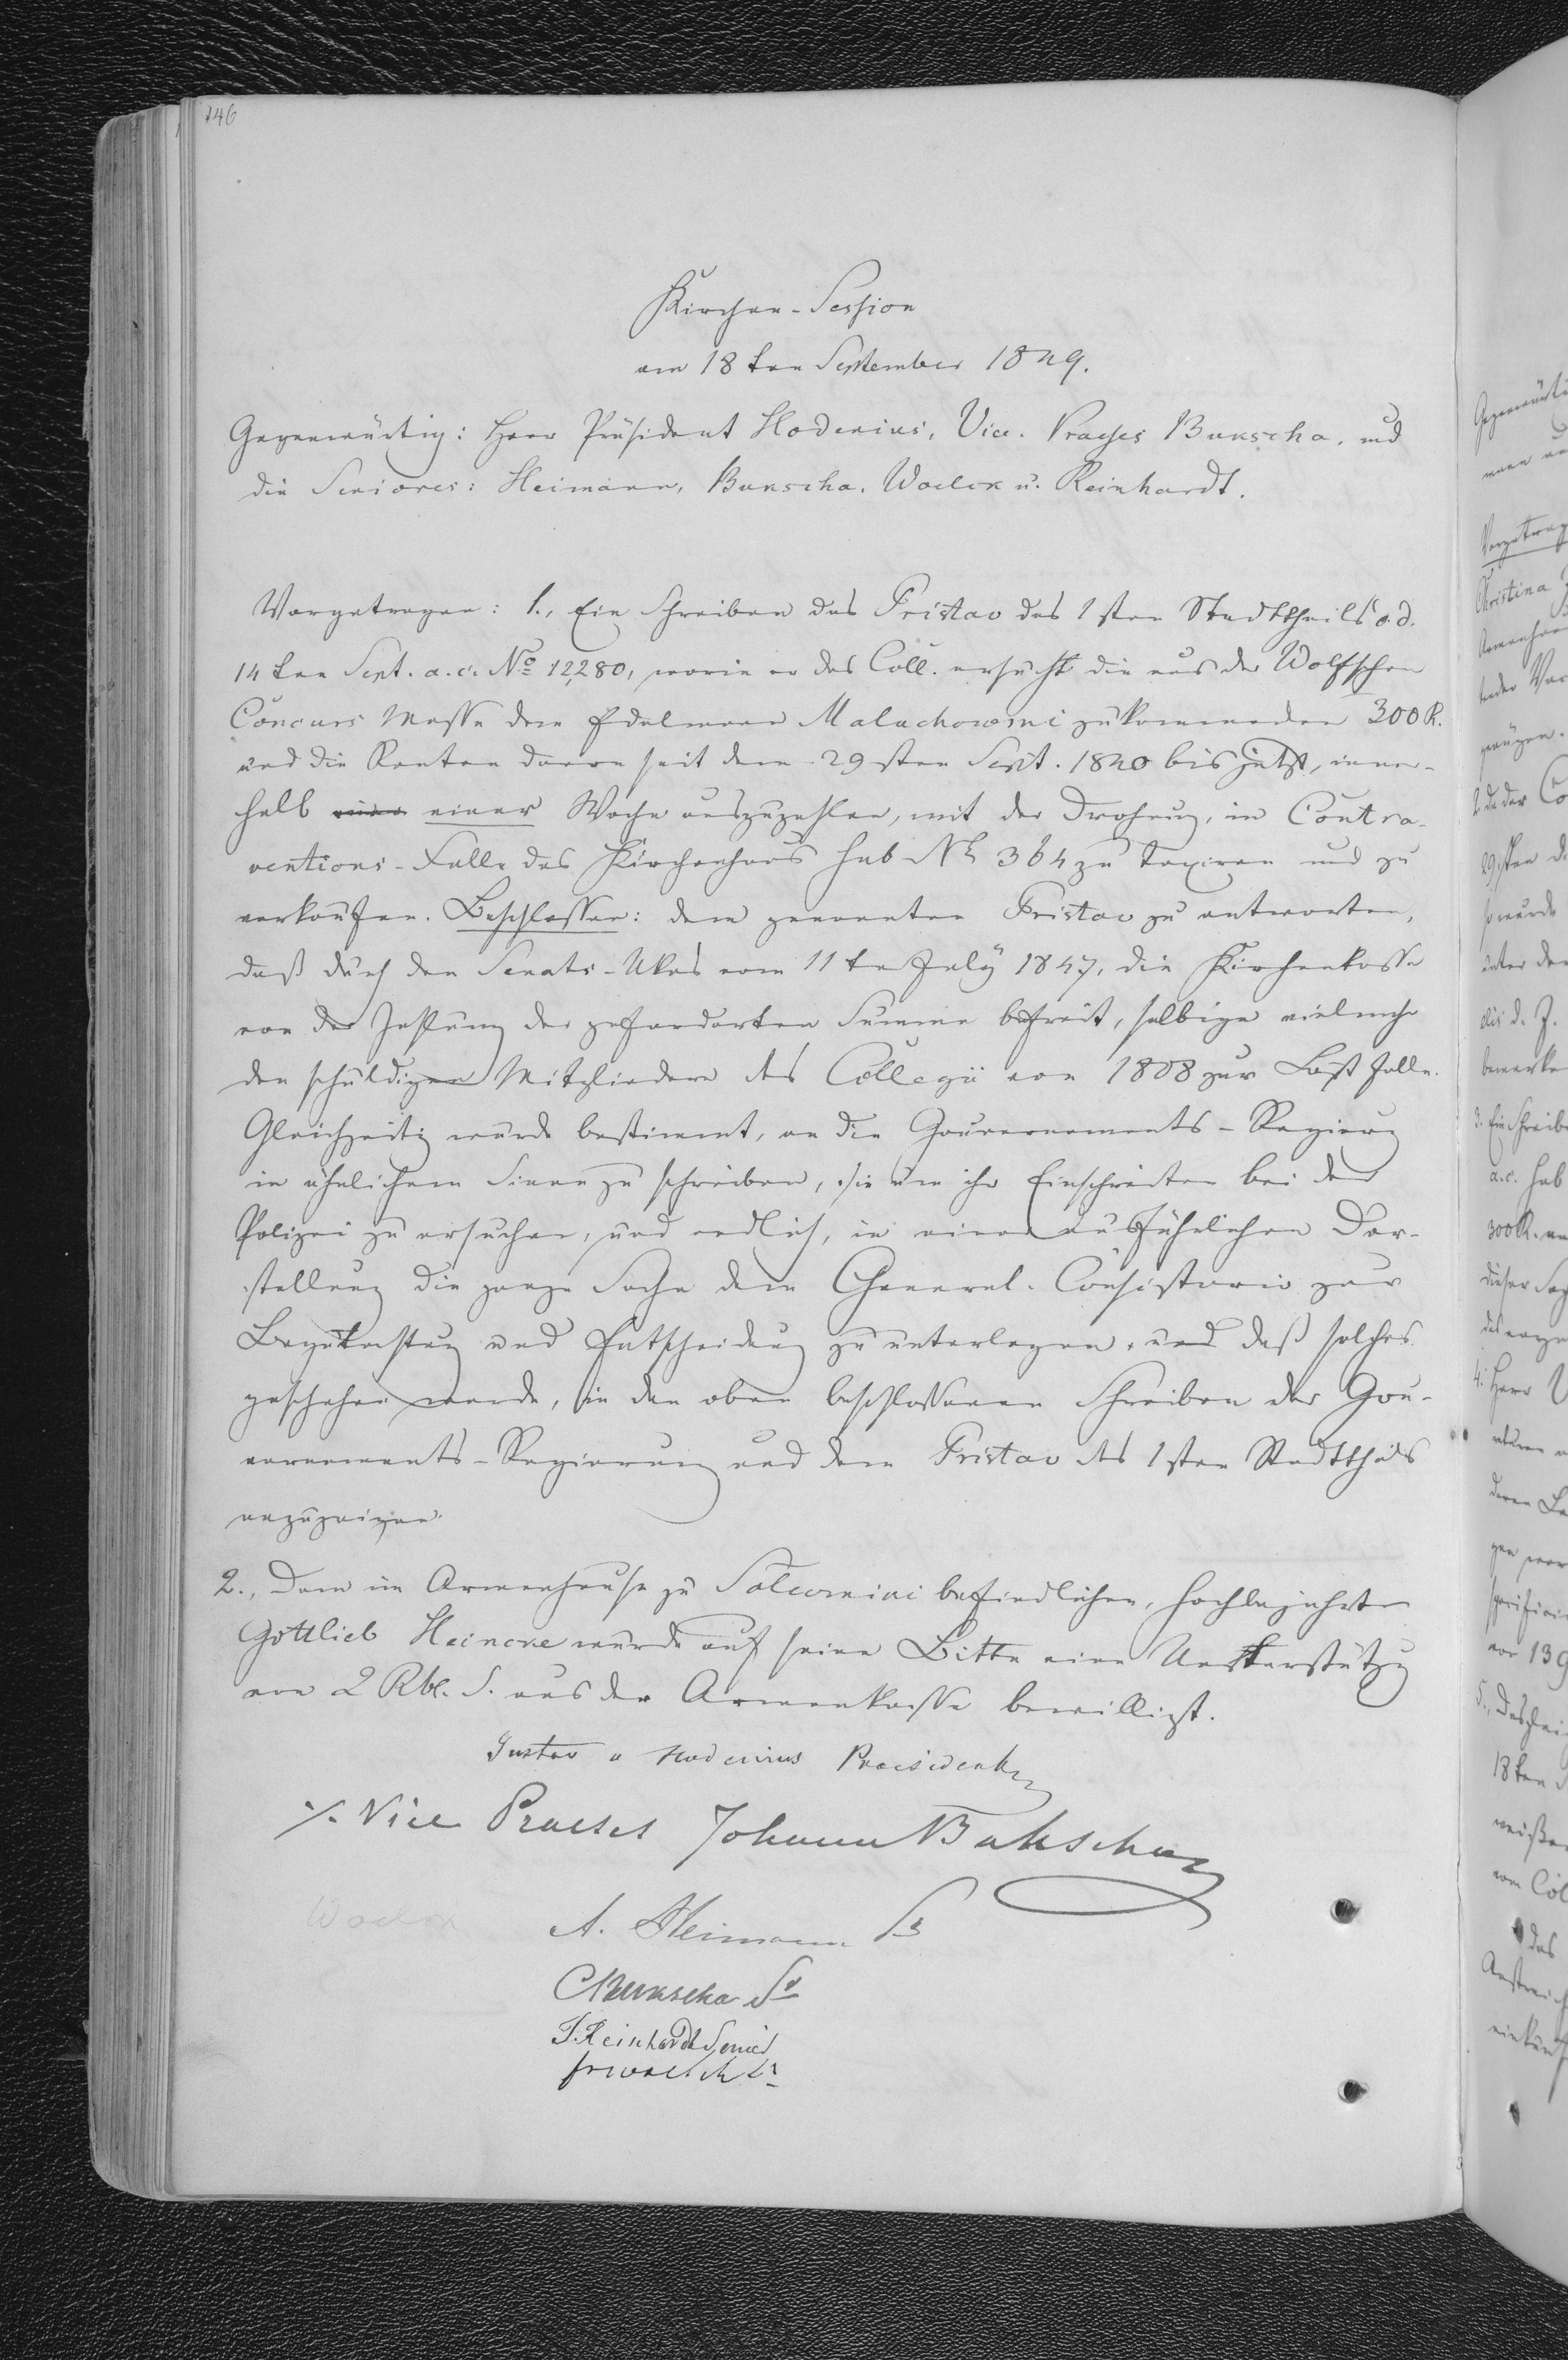 146
Kirchen-Session
am 18ten September 1849.
Gegenwärtig: Herr Präsident Hoderius, Vice. Praeses Bukscha, und
die Seniores: Heimann, Bukscha, Woelck u. Reinhardt.
Vorgetragen: 1., Ein Schreiben des Pristav des 1sten Stadttheils d. d.
14ten Sept. a. c. No 12,280, worin er das Coll. ersucht die aus der Wolfschen
Concurs Masse dem Edelmann Malachowski zukommenden 300 R.
und die Renten davon seit dem 29sten Sept. 1840 bis jetzt, inner-
halb einer einer Woche auszuzahlen, mit der Drohung, in Contra-
ventions-Falle das Kirchenhaus sub No 364 zu taxiren und zu
verkaufen. Beschlossen: dem genannten Pristav zu antworten,
daß durch den Senats-Ukas vom 11ten July 1847, die Kirchenkasse
von der Zahlung der geforderten Summe befreit, selbige vielmehr
den schuldigen Mitgliedern des Collegii von 1808 zur Last falle.
Gleichzeitig wurde bestimmt, an die Gouvernements-Regierung
in ähnlichem Sinne zu schreiben, sie um ihr Einschreiten bei der
Polizei zu ersuchen, und endlich, in einer ausführlichen Dar-
stellung die ganze Sache dem General-Consistorio zur
Begutachtung und Entscheidung zu unterlegen, und daß solches
geschehen werde, in den oben beschlossenen Schreiben der Gou-
vernements-Regierung und dem Pristav des 1sten Stadttheils
anzuzeigen.
2., Dem im Armenhause zu befindlichen, hochbejahrten
Gottlieb Heincke wurde auf seine Bitte eine Unterstützung
von 2 Rbl. S. aus der Armenkasse bewilligt.
Gustav v Hoderius Praesident
Vice Praeses Johann Bukscha
Woelck
A. Heimann Sr
C Bukscha Sr
J. Reinhardt Senior
Woelck Sr
Gegenwärti
Vorgetrag
Christina
Armenhau
2. da der Co
29sten d
so wurde
unter der
bemerke
3. Ein Schreib
a. c. sub
300 R.
dieser Sa
4. Herr
deren
vor 139
5.,
18ten
vom Col
das